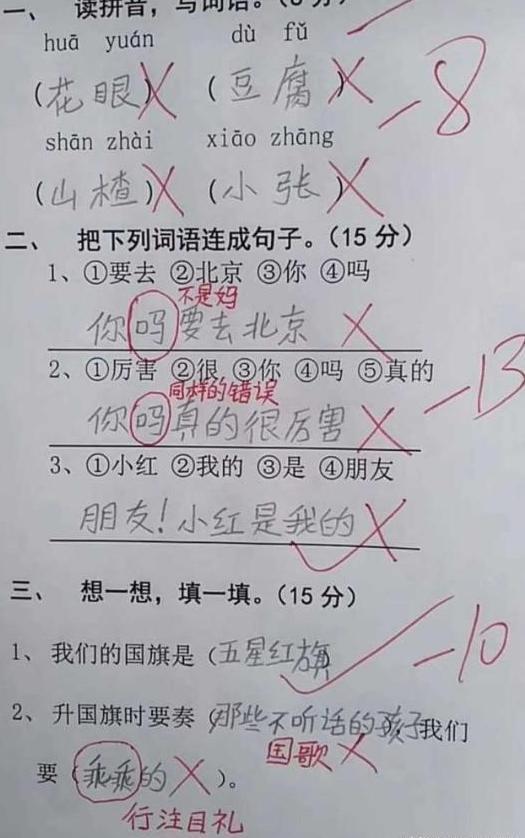 一、 读拼音，写词语。(8分)
huā yuán dù fǔ
(花眼)X (豆腐)X
-8
shān zhài xiāo zhāng
(山楂)X (小张)X
二、 把下列词语连成句子。(15分)
1、①要去 ②北京 ③你 ④吗
不是妈
你吗要去北京 X
2、①厉害 ②很 ③你 ④吗 ⑤真的
同样的错误
你吗真的很厉害 X
-13
3、①小红 ②我的 ③是 ④朋友
朋友!小红是我的 X
三、 想一想，填一填。(15分)
1、我们的国旗是(五星红旗)
-10
2、升国旗时要奏(那些不听话的孩子)，我们
国歌 X
要(乖乖的 X )。
行注目礼